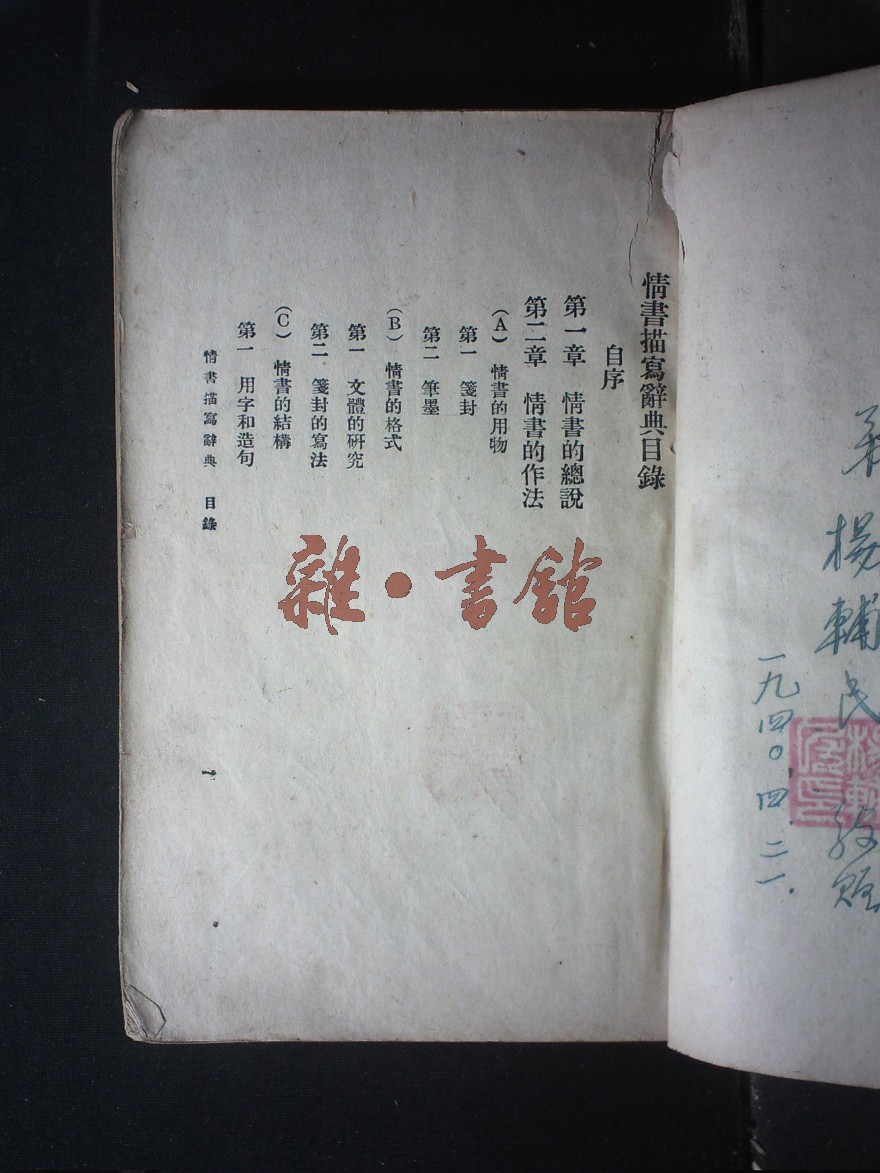 楊輔民
一九四〇.四.二一.
情書描寫辭典目錄
自序
第一章 情書的總說
第二章 情書的作法
(A) 情書的用物
第一 箋封
第二 筆墨
(B) 情書的格式
第一 文體的研究
第二 箋封的寫法
(C) 情書的結構
第一 用字和造句
情書描寫辭典 目錄
一
雜·書館